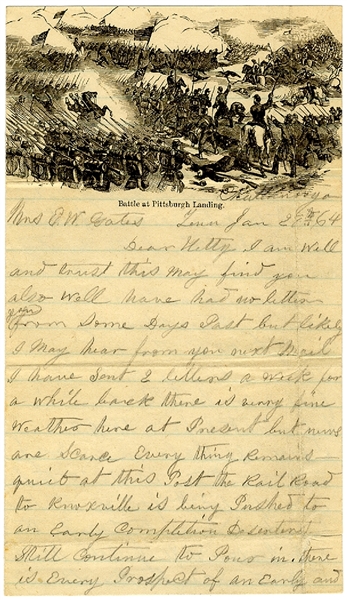 Battle at Pittsburgh Landing.
Chattanooga
Mrs F. W. Cates Tenn Jan 29th /64
Dear Hetty I am Well
and trust this May find you
also Well have had no letter
you
from Some Days Past but likely
I May hear from you next Mail
I have Sent 2 letters a Week for
a While back there is verry fine
Weather here at Present but news
are Scarce Every thing Remains
quiet at this Post the Rail Road
to Knoxville is being Pushed to
an Early Completion Deserters
Still Continue to Pour in. there
is Every Prospect of an Early and